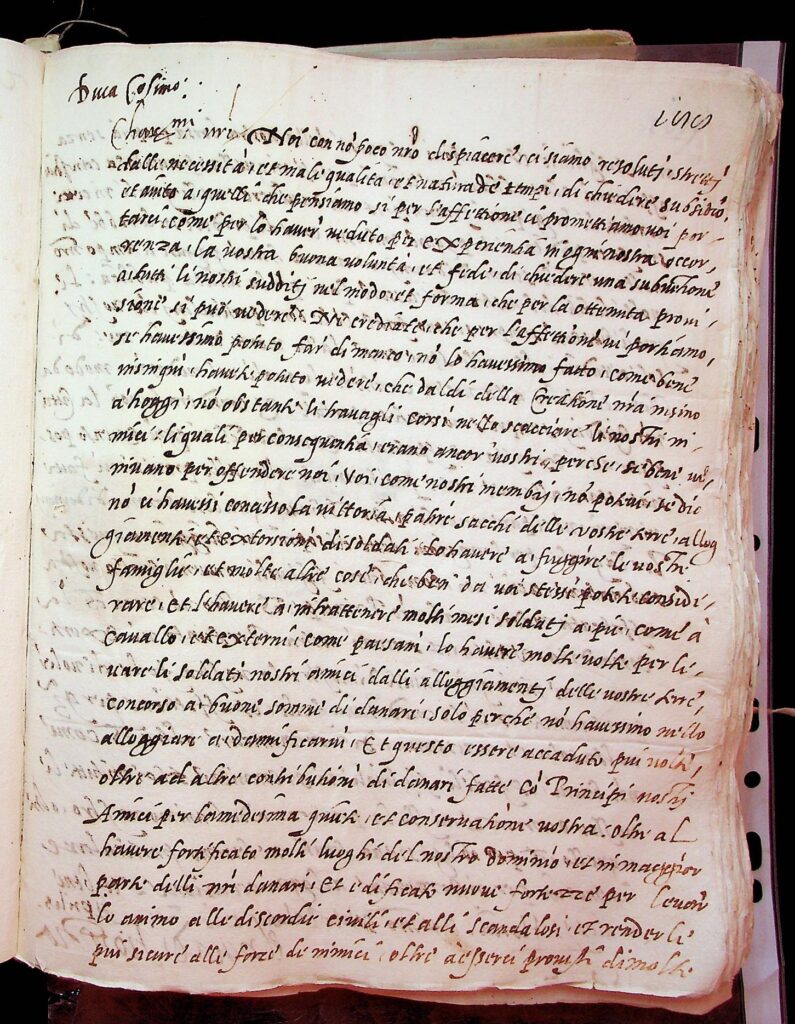 Duca Cosimo:
Char.mi nri Noi con nō poco nrō despiacere, ci siamo resoluti, stretti
dalle necessità, et male qualità, et natura de tempi, di chiedere subsidio,
et aiuto a quelli, che pensiamo, si per l'affettione ci promettiamo voi por-
tarci, come per lo haver veduto per experientia in ogni nostra occor-
renza, la vostra buona voluntà, et fede, di chiedere una subventione
a tutti li nostri sudditi nel modo, et forma, che per la ottenuta provi-
sione si può vedere. Ne crediate, che per l'affettione vi portiamo,
se havessimo potuto far di manco, nō lo havessimo fatto, come bene
insin qui havete potuto vedere, che dal dì della Creatione nrā insino
a hoggi, nō obstante li travagli corsi nello scacciare li nostri ni-
mici: li quali per consequentia, erano ancor vostri, perche, se bene ve-
nivano per offendere noi, voi, come nostri membri, nō potevi, se dio
nō ci havessi concesso la vittoria, patire sacchi delle vostre terre, allog
giamenti, et extorsioni di soldati, lo havere a fuggire le vostre
famiglie, et molte altre cose, che ben da voi stessi potete conside-
rare, et l'havere a intrattenere molti mesi soldati a piè, come à
cavallo, et externi, come paesani, lo havere molte volte per le-
vare li soldati nostri amici dalli alloggiamenti delle vostre terre,
concorso a buone somme di danari, solo perche nō havessino nello
alloggiare a damnificarvi, Et questo essere accaduto piu volte,
oltre ad altre contributioni di danari fatte cō Principi nostri
Amici per la medesima quiete, et conservatione vostra: oltre al
havere fortificato molti luoghi del nostro dominio, et in maggior
parte delli nri danari, Et edificate nuove fortezze per levare
lo animo alle discordie civili, et alli scandalosi, et renderle
piu sicure alle forze de nimici, oltre a esserci provisti di molte